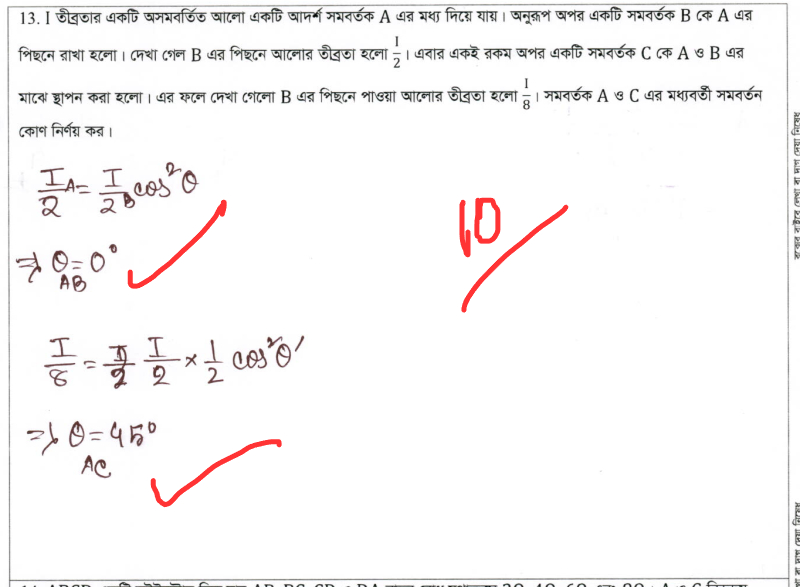 13. I তীব্রতার একটি অসমবর্তিত আলো একটি আদর্শ সমবর্তক A এর মধ্য দিয়ে যায়। অনুরূপ অপর একটি সমবর্তক B কে A এর
পিছনে রাখা হলো। দেখা গেল B এর পিছনে আলোর তীব্রতা হলো I/2। এবার একই রকম অপর একটি সমবর্তক C কে A ও B এর
মাঝে স্থাপন করা হলো। এর ফলে দেখা গেলো B এর পিছনে পাওয়া আলোর তীব্রতা হলো I/8। সমবর্তক A ও C এর মধ্যবর্তী সমবর্তন
কোণ নির্ণয় কর।
I/2 A = I/2 B cos²θ
⇒ θ_AB = 0°
10
I/8 = I/2 × 1/2 cos²θ'
⇒ θ_AC = 45°